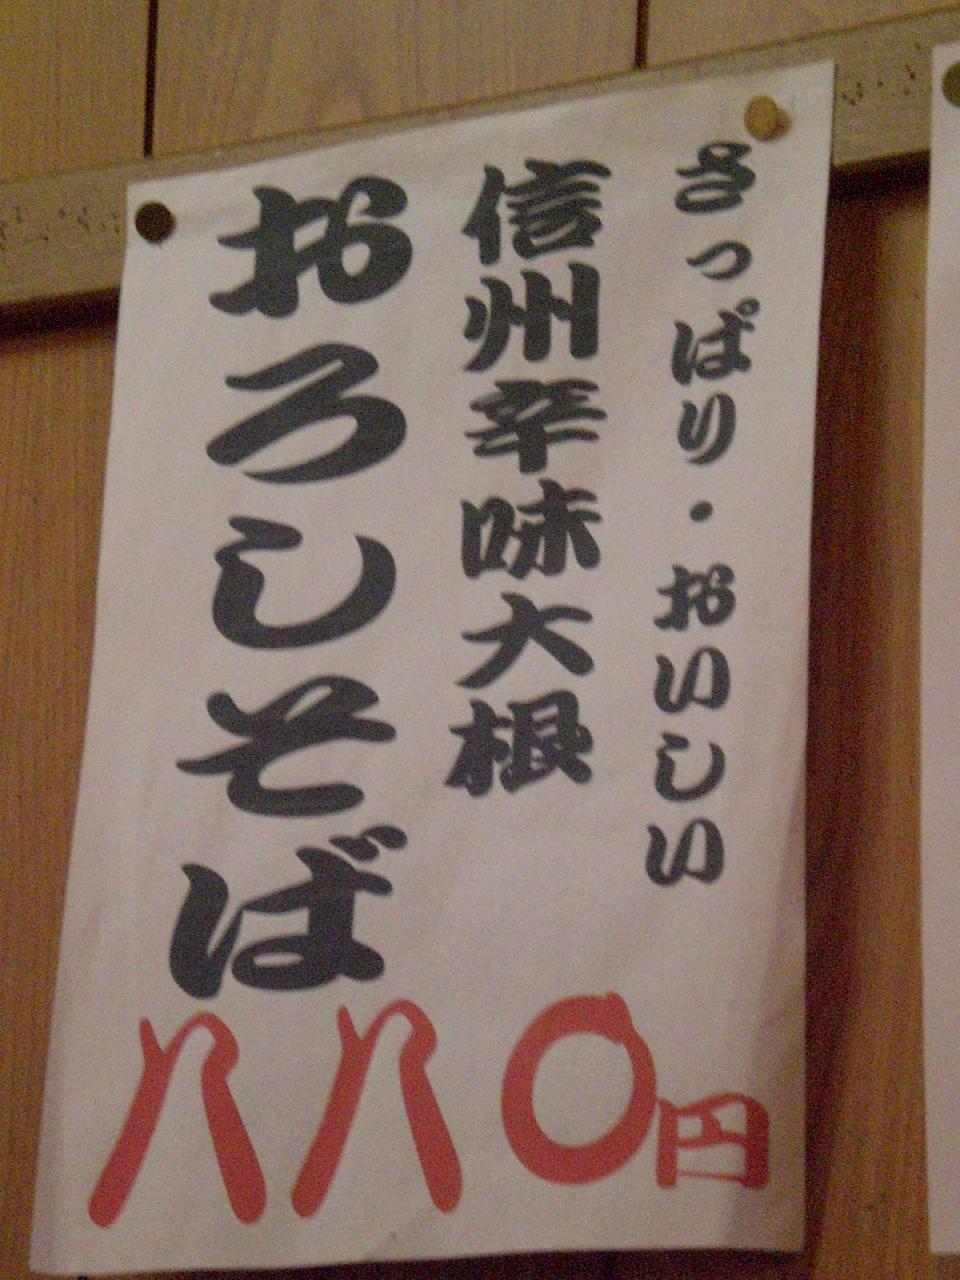 さっぱり・おいしい
信州辛味大根
おろしそば
八八〇円